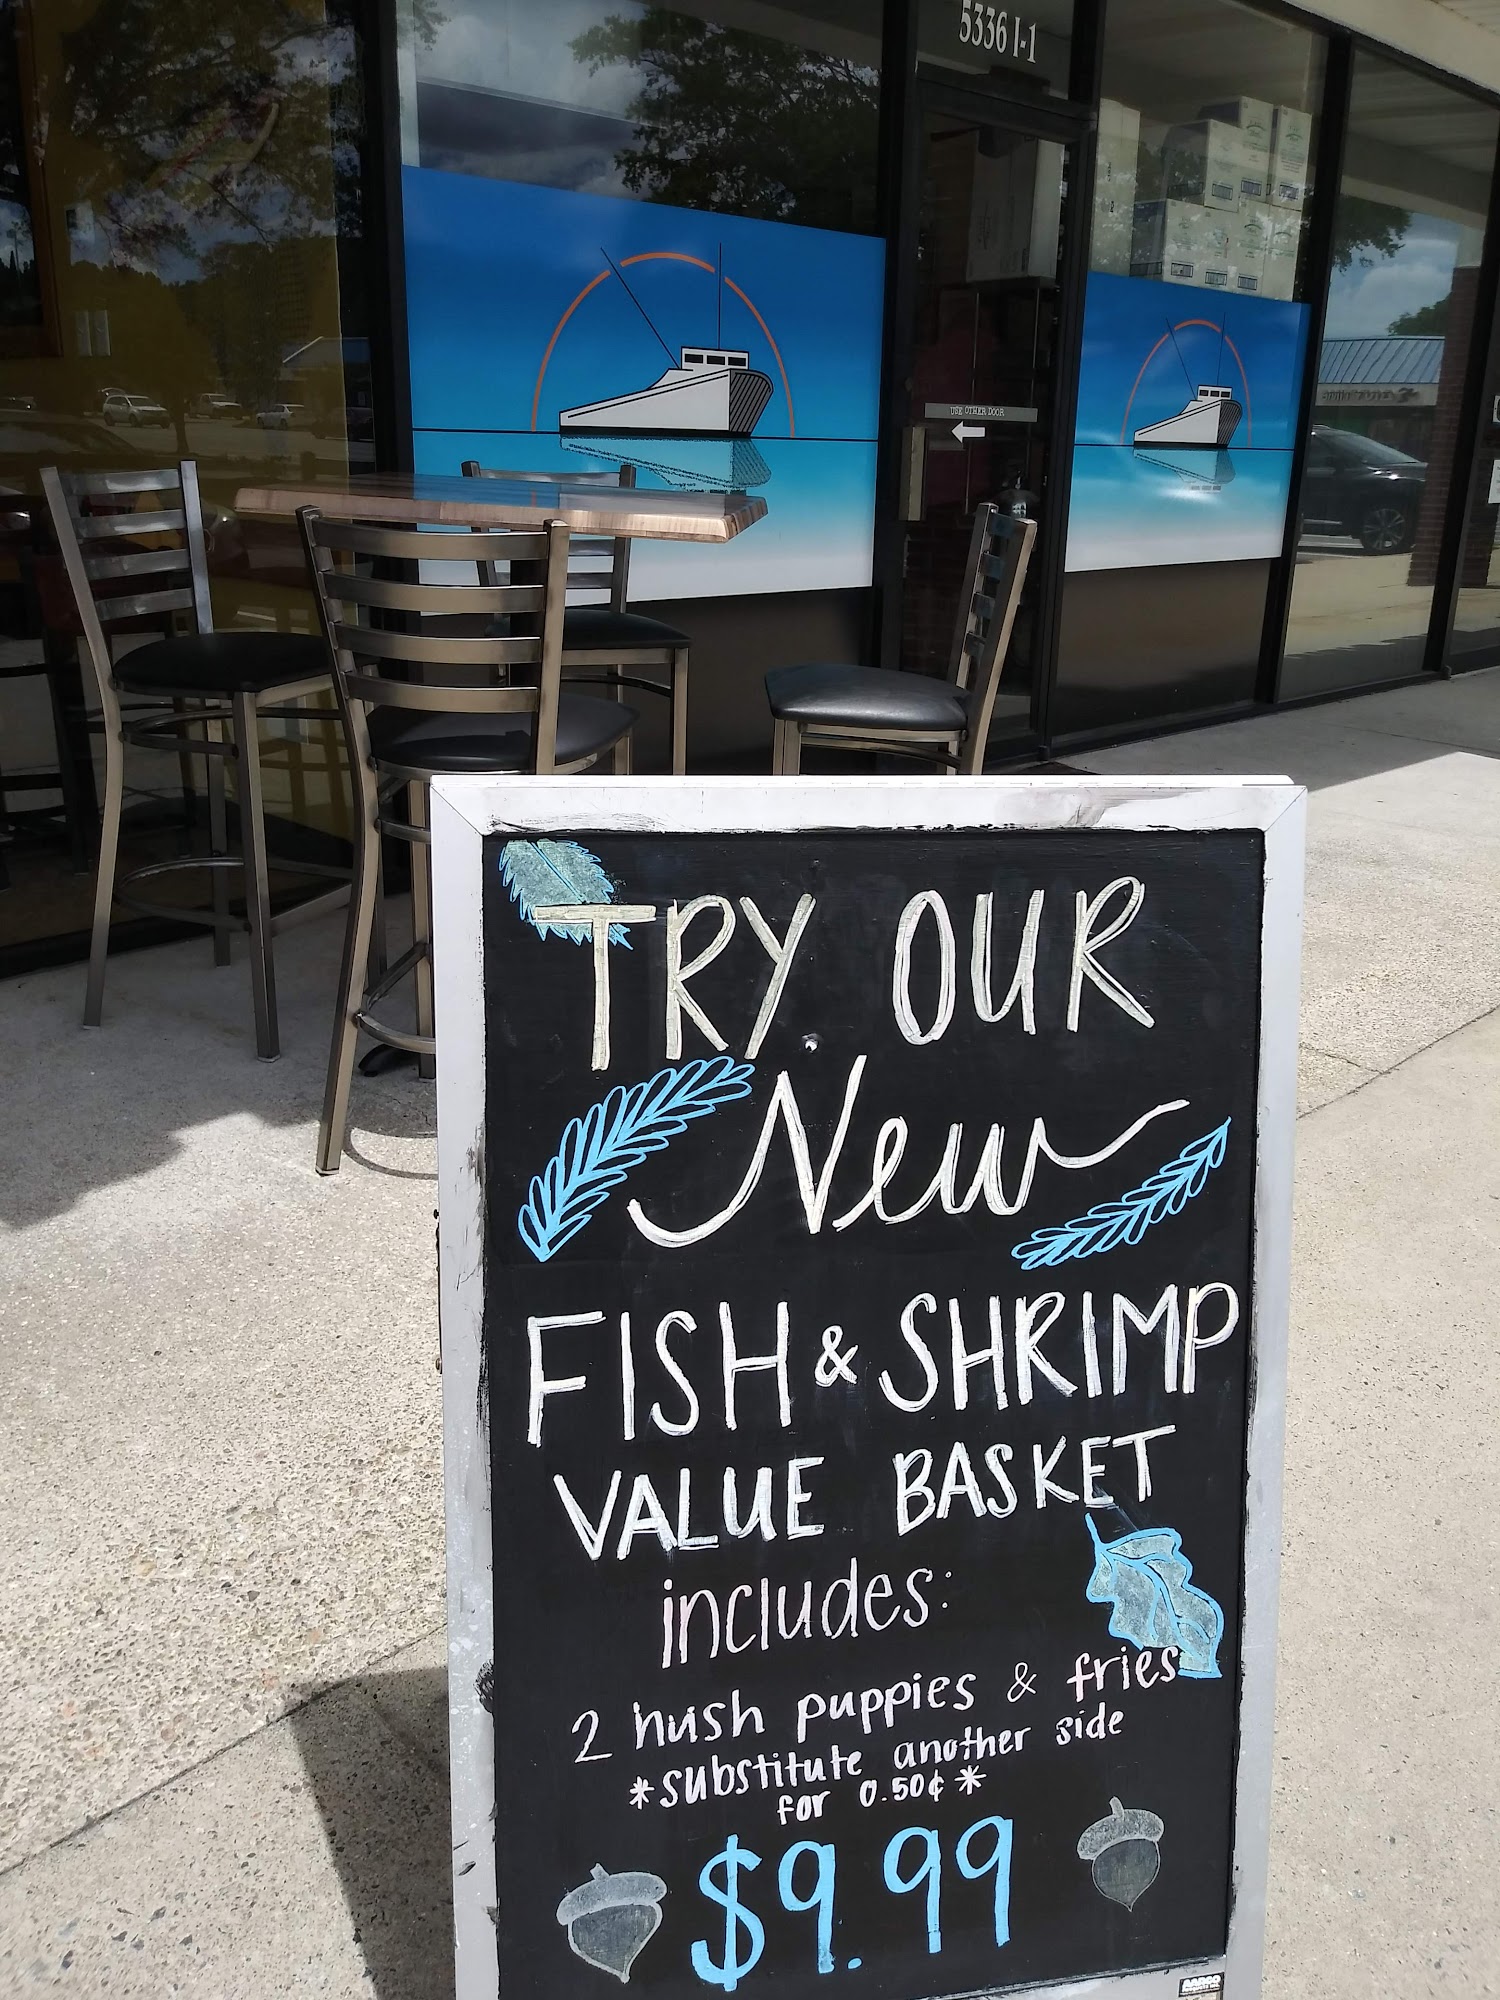 5336 I-1
USE OTHER DOOR
TRY OUR
New
FISH & SHRIMP
VALUE BASKET
includes:
2 hush puppies & fries
*substitute another side
for 0.50¢*
$9.99